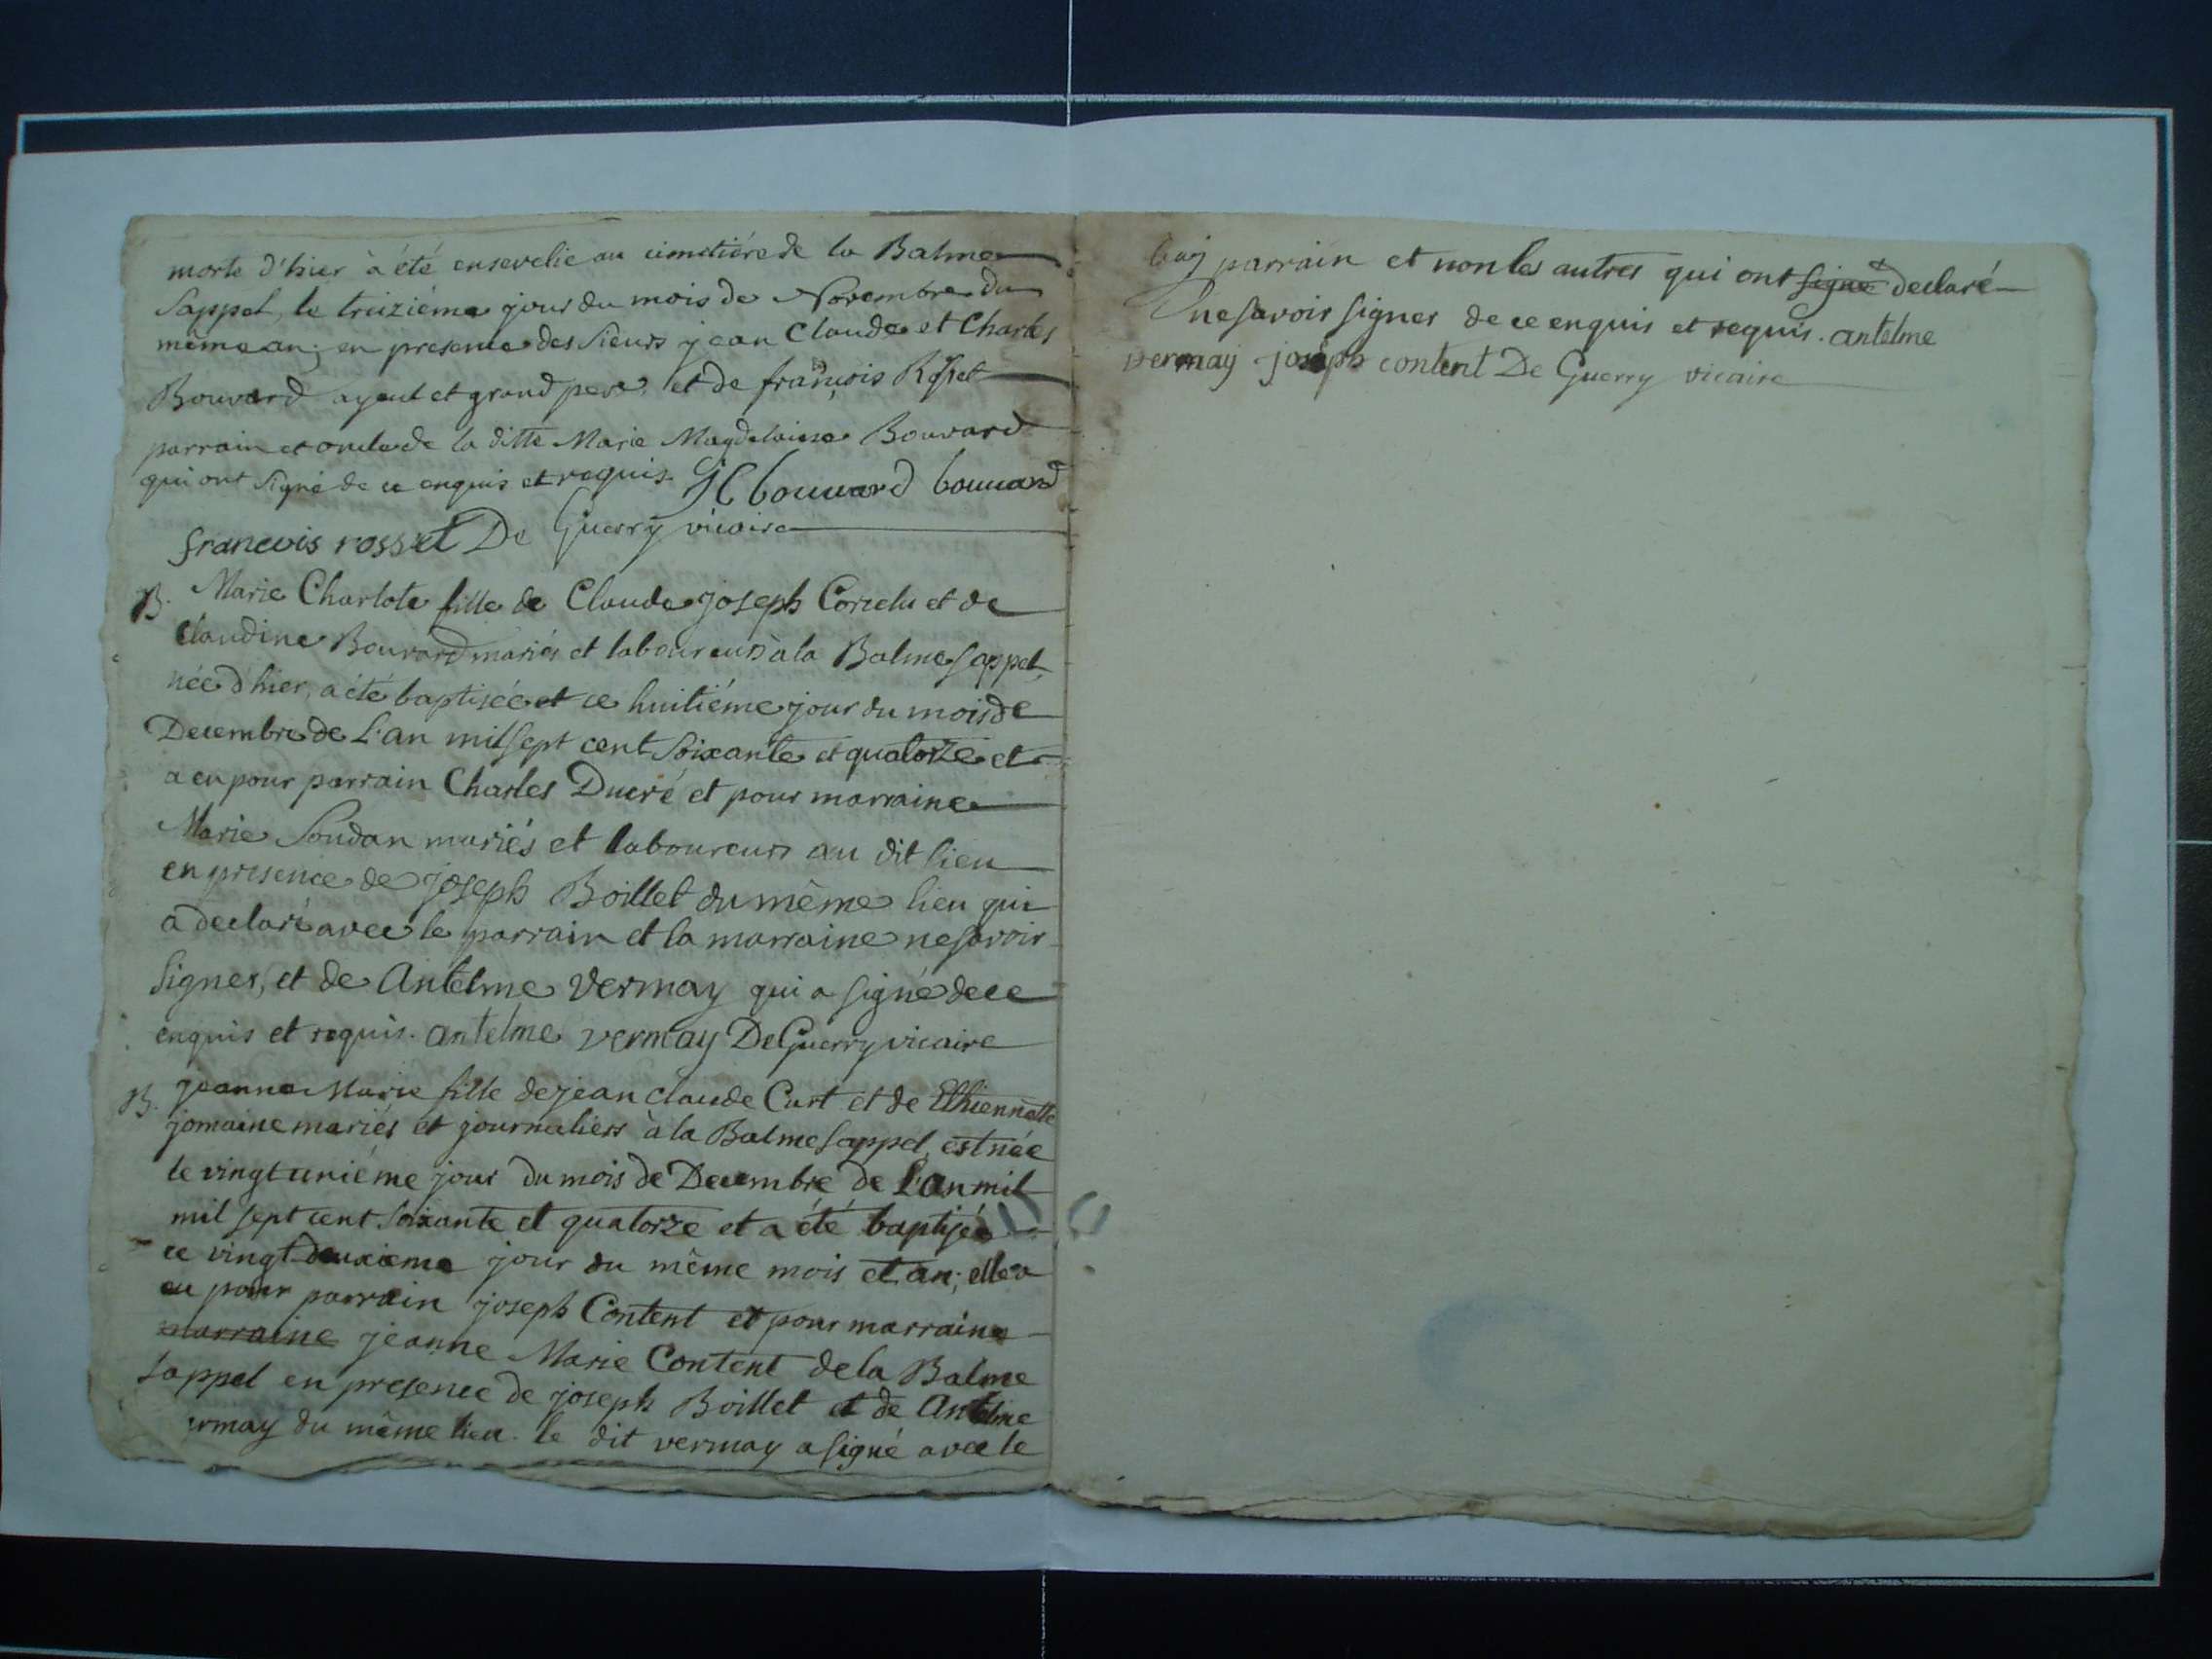 morte d'hier à été ensevelie au cimetiére de la Balme
Sappel, le treiziéme jour du mois de Novembre du
même an; en presence des Sieurs jean Claude et Charles
Bouvard ayeul et grand pere, et de françois Rosset
parrain et oncle de la ditte Marie Magdelaine Bouvard
qui ont signé de ce enquis et requis. JC bouuard bouuard
francois rosset De Guerry vicaire
B. Marie Charlote fille de Claude joseph Corcelu et de
Claudine Bouvard mariés et laboureurs à la Balme Sappel,
née d'hier, a été baptisée et ce huitiéme jour du mois de
Decembre de L'an mil sept cent soixante et quatorze et
a eu pour parrain Charles Ducré et pour marraine
Marie Soudan mariés et laboureurs au dit lieu
en presence de joseph Boillet du même lieu qui
a declaré avec le parrain et la marraine ne savoir
signer, et de Antelme Vermay qui a signé de ce
enquis et requis. antelme vermay De Guerry vicaire
B. jeanne Marie fille de jean claude Curt et de Ethiennette
jomaine mariés et journaliers à la Balme Sappel, est née
le vingt uniéme jour du mois de Decembre de L'an mil
mil sept cent soixante et quatorze et a été baptisée
ce vingt deuxieme jour du même mois et an; elle a
eu pour parrain joseph Content et pour marraine
marraine jeanne Marie Content de la Balme
sappel en presence de joseph Boillet et de Antelme
ermay du même lieu. le dit vermay a signé avec le
parrain et non les autres qui ont signé declaré
ne savoir signer de ce enquis et requis. antelme
vermay joseph content De Guerry vicaire